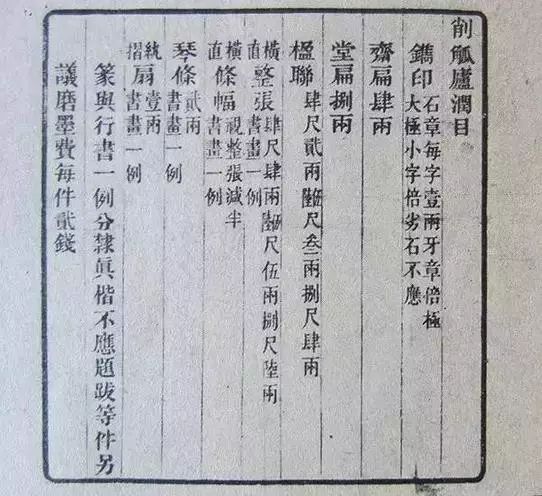 削觚廬潤目
鐫印 石章每字壹兩牙章倍極大極小字倍劣石不應
齋扁肆兩
堂扁捌兩
楹聯 肆尺貳兩陸尺叁兩捌尺肆兩
橫直整張 肆尺肆兩陸尺伍兩捌尺陸兩書畫一例
橫直條幅 視整張減半書畫一例
琴條 貳兩書畫一例
紈摺扇 壹兩書畫一例
篆與行書一例分隸眞楷不應題跋等件另
議磨墨費每件貳錢